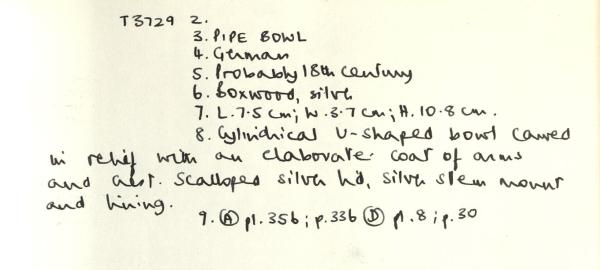 T3729 2.
3. PIPE BOWL
4. German
5. Probably 18th century
6. Boxwood, silver
7. L.7.5 cm; W.3.7 cm; H.10.8 cm.
8. Cylindrical U-shaped bowl carved
in relief with an elaborate coat of arms
and crest. Scalloped silver lid, silver stem mount
and lining.
9. Ⓐ pl.35b; p.336 Ⓓ pl.8; p.30